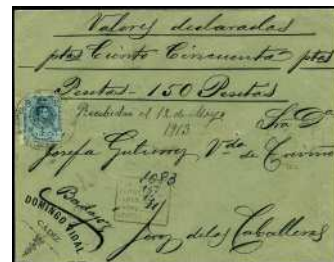 Valores declarados
ptas Ciento Cincuenta ptas
Pesetas - 150 Pesetas
Recibidas el 12 de Mayo
1913
Sra Dª
Josefa Gutierrez Vda de
Badajoz
1083
DOMINGO VIDAL
CADIZ
Jerez de los Caballeros